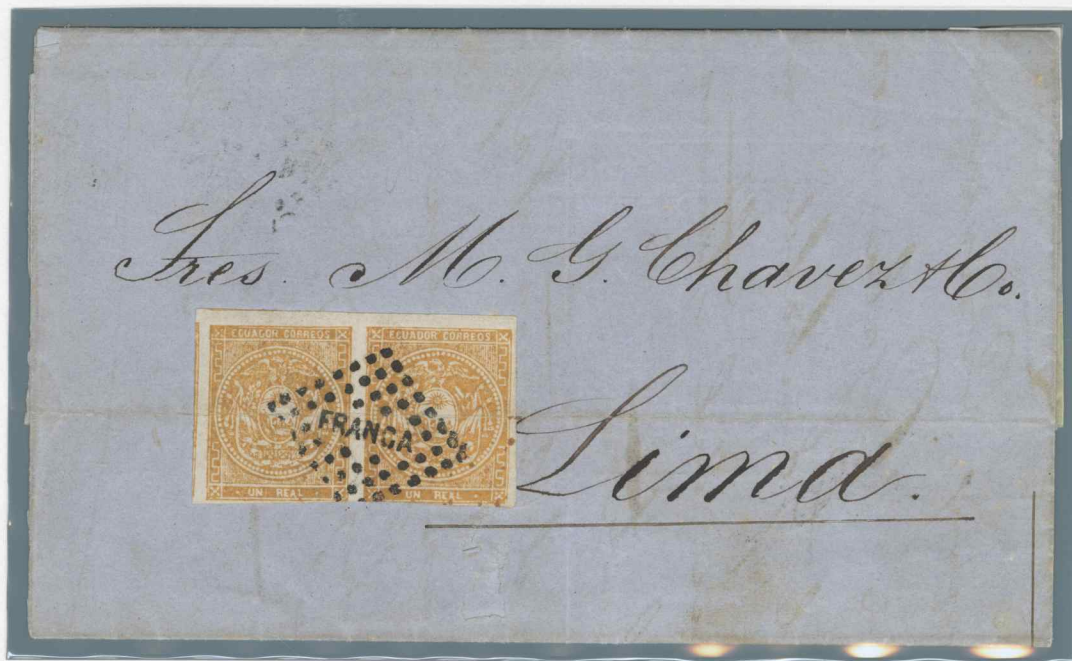 Sres. M. G. Chavez & Co.
ECUADOR CORREOS ECUADOR CORREOS
FRANCA
UN REAL UN REAL
Lima.